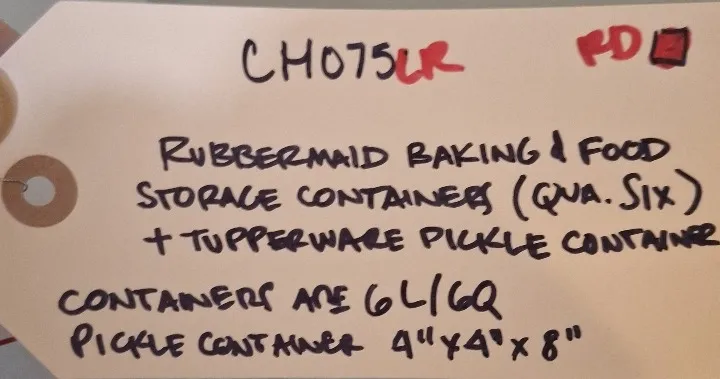 CH075LR RD
RUBBERMAID BAKING & FOOD
STORAGE CONTAINERS (QUA. SIX)
+ TUPPERWARE PICKLE CONTAINER
CONTAINERS ARE 6L/6Q
PICKLE CONTAINER 4"x4"x8"